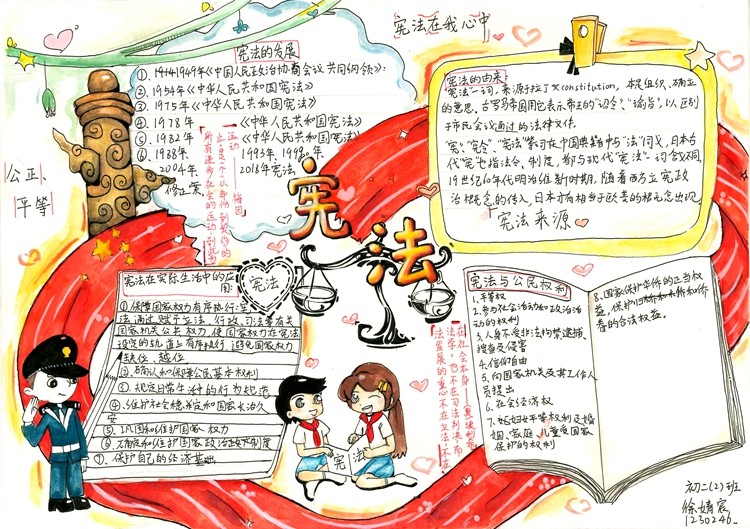 宪法在我心中
宪法的发展
①、1949年《中国人民政治协商会议共同纲领》:
②、1954年《中华人民共和国宪法》
③、1975年《中华人民共和国宪法》
④、1978年 《中华人民共和国宪法》
⑤、1982年 《中华人民共和国宪法》
⑥、1988年、 1993年、1999年、
2004年 2018年宪法
修正案
公正、
平等
宪法的由来
"宪法"一词,来源于拉丁文constitution,本是组织、确立
的意思。古罗马帝国用它表示帝王的"诏令"、"谕旨",以区别
于市民会议通过的法律文件。
"宪"、"宪令"、"宪法"等词在中国典籍中与"法"同义,日本古
代"宪"也指法令、制度,都与现代"宪法"一词含义不同,
19世纪60年代明治维新时期,随着西方立宪政
治概念的传入,日本才有相当于欧美的概念出现
宪法来源
宪法
宪法在实际生活中的应
用:
宪法
①保障国家权力有序执行:宪
法通过赋予立法、行政、司法等有关
国家机关公共权力,使国家权力在宪法
设定的轨道上有序执行,避免国家权力
缺位、越位
②确认和保障公民基本权利
③规定日常生活的行为规范
④维护社会稳定和国家长治久
安
⑤巩固和维护国家权力
⑥确认和维护国家经济制度
⑦、保护自己的经济基础
宪法
宪法与公民权利
1.平等权
2.参与社会活动和政治活
动的权利
3.人身不受非法拘禁逮捕、
搜查及侵害
4.信仰自由
5.向国家机关及其工作人
员提出
6.社会经济权
7.妇女平等权利及婚
姻、家庭、儿童受国家
保护的权利
8.国家保护华侨的正当权
益,保护归侨和侨
眷的合法权益。
初二(2)班
徐婧宸
1230246